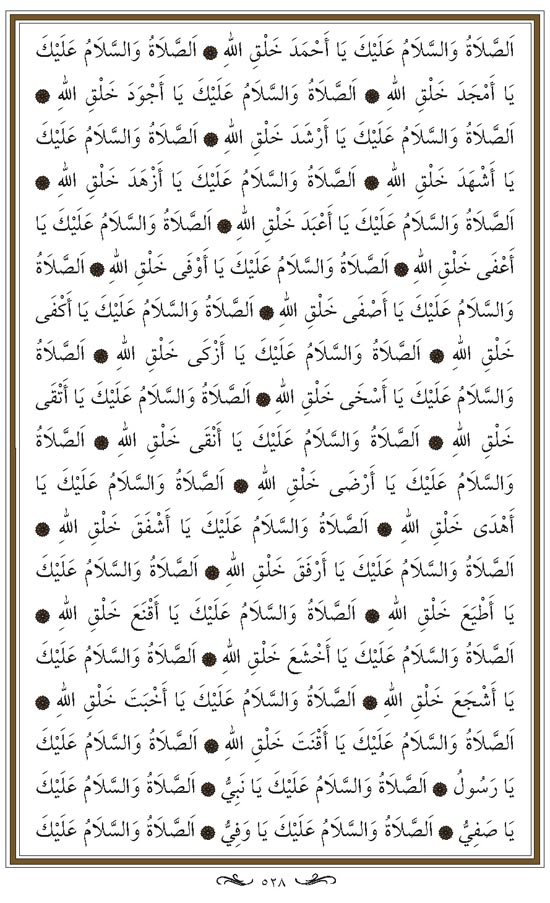 اَلصَّلَاةُ وَالسَّلَامُ عَلَيْكَ يَا أَحْمَدَ خَلْقِ اللهِ ۞ اَلصَّلَاةُ وَالسَّلَامُ عَلَيْكَ
يَا أَمْجَدَ خَلْقِ اللهِ ۞ اَلصَّلَاةُ وَالسَّلَامُ عَلَيْكَ يَا أَجْوَدَ خَلْقِ اللهِ ۞
اَلصَّلَاةُ وَالسَّلَامُ عَلَيْكَ يَا أَرْشَدَ خَلْقِ اللهِ ۞ اَلصَّلَاةُ وَالسَّلَامُ عَلَيْكَ
يَا أَشْهَدَ خَلْقِ اللهِ ۞ اَلصَّلَاةُ وَالسَّلَامُ عَلَيْكَ يَا أَزْهَدَ خَلْقِ اللهِ ۞
اَلصَّلَاةُ وَالسَّلَامُ عَلَيْكَ يَا أَعْبَدَ خَلْقِ اللهِ ۞ اَلصَّلَاةُ وَالسَّلَامُ عَلَيْكَ يَا
أَعْفَى خَلْقِ اللهِ ۞ اَلصَّلَاةُ وَالسَّلَامُ عَلَيْكَ يَا أَوْفَى خَلْقِ اللهِ ۞ اَلصَّلَاةُ
وَالسَّلَامُ عَلَيْكَ يَا أَصْفَى خَلْقِ اللهِ ۞ اَلصَّلَاةُ وَالسَّلَامُ عَلَيْكَ يَا أَكْفَى
خَلْقِ اللهِ ۞ اَلصَّلَاةُ وَالسَّلَامُ عَلَيْكَ يَا أَزْكَى خَلْقِ اللهِ ۞ اَلصَّلَاةُ
وَالسَّلَامُ عَلَيْكَ يَا أَسْخَى خَلْقِ اللهِ ۞ اَلصَّلَاةُ وَالسَّلَامُ عَلَيْكَ يَا أَتْقَى
خَلْقِ اللهِ ۞ اَلصَّلَاةُ وَالسَّلَامُ عَلَيْكَ يَا أَنْقَى خَلْقِ اللهِ ۞ اَلصَّلَاةُ
وَالسَّلَامُ عَلَيْكَ يَا أَرْضَى خَلْقِ اللهِ ۞ اَلصَّلَاةُ وَالسَّلَامُ عَلَيْكَ يَا
أَهْدَى خَلْقِ اللهِ ۞ اَلصَّلَاةُ وَالسَّلَامُ عَلَيْكَ يَا أَشْفَقَ خَلْقِ اللهِ ۞
اَلصَّلَاةُ وَالسَّلَامُ عَلَيْكَ يَا أَرْفَقَ خَلْقِ اللهِ ۞ اَلصَّلَاةُ وَالسَّلَامُ عَلَيْكَ
يَا أَطْيَعَ خَلْقِ اللهِ ۞ اَلصَّلَاةُ وَالسَّلَامُ عَلَيْكَ يَا أَقْنَعَ خَلْقِ اللهِ ۞
اَلصَّلَاةُ وَالسَّلَامُ عَلَيْكَ يَا أَخْشَعَ خَلْقِ اللهِ ۞ اَلصَّلَاةُ وَالسَّلَامُ عَلَيْكَ
يَا أَشْجَعَ خَلْقِ اللهِ ۞ اَلصَّلَاةُ وَالسَّلَامُ عَلَيْكَ يَا أَخْبَتَ خَلْقِ اللهِ ۞
اَلصَّلَاةُ وَالسَّلَامُ عَلَيْكَ يَا أَقْنَتَ خَلْقِ اللهِ ۞ اَلصَّلَاةُ وَالسَّلَامُ عَلَيْكَ
يَا رَسُولُ ۞ اَلصَّلَاةُ وَالسَّلَامُ عَلَيْكَ يَا نَبِيُّ ۞ اَلصَّلَاةُ وَالسَّلَامُ عَلَيْكَ
يَا صَفِيُّ ۞ اَلصَّلَاةُ وَالسَّلَامُ عَلَيْكَ يَا وَفِيُّ ۞ اَلصَّلَاةُ وَالسَّلَامُ عَلَيْكَ
٥٣٨